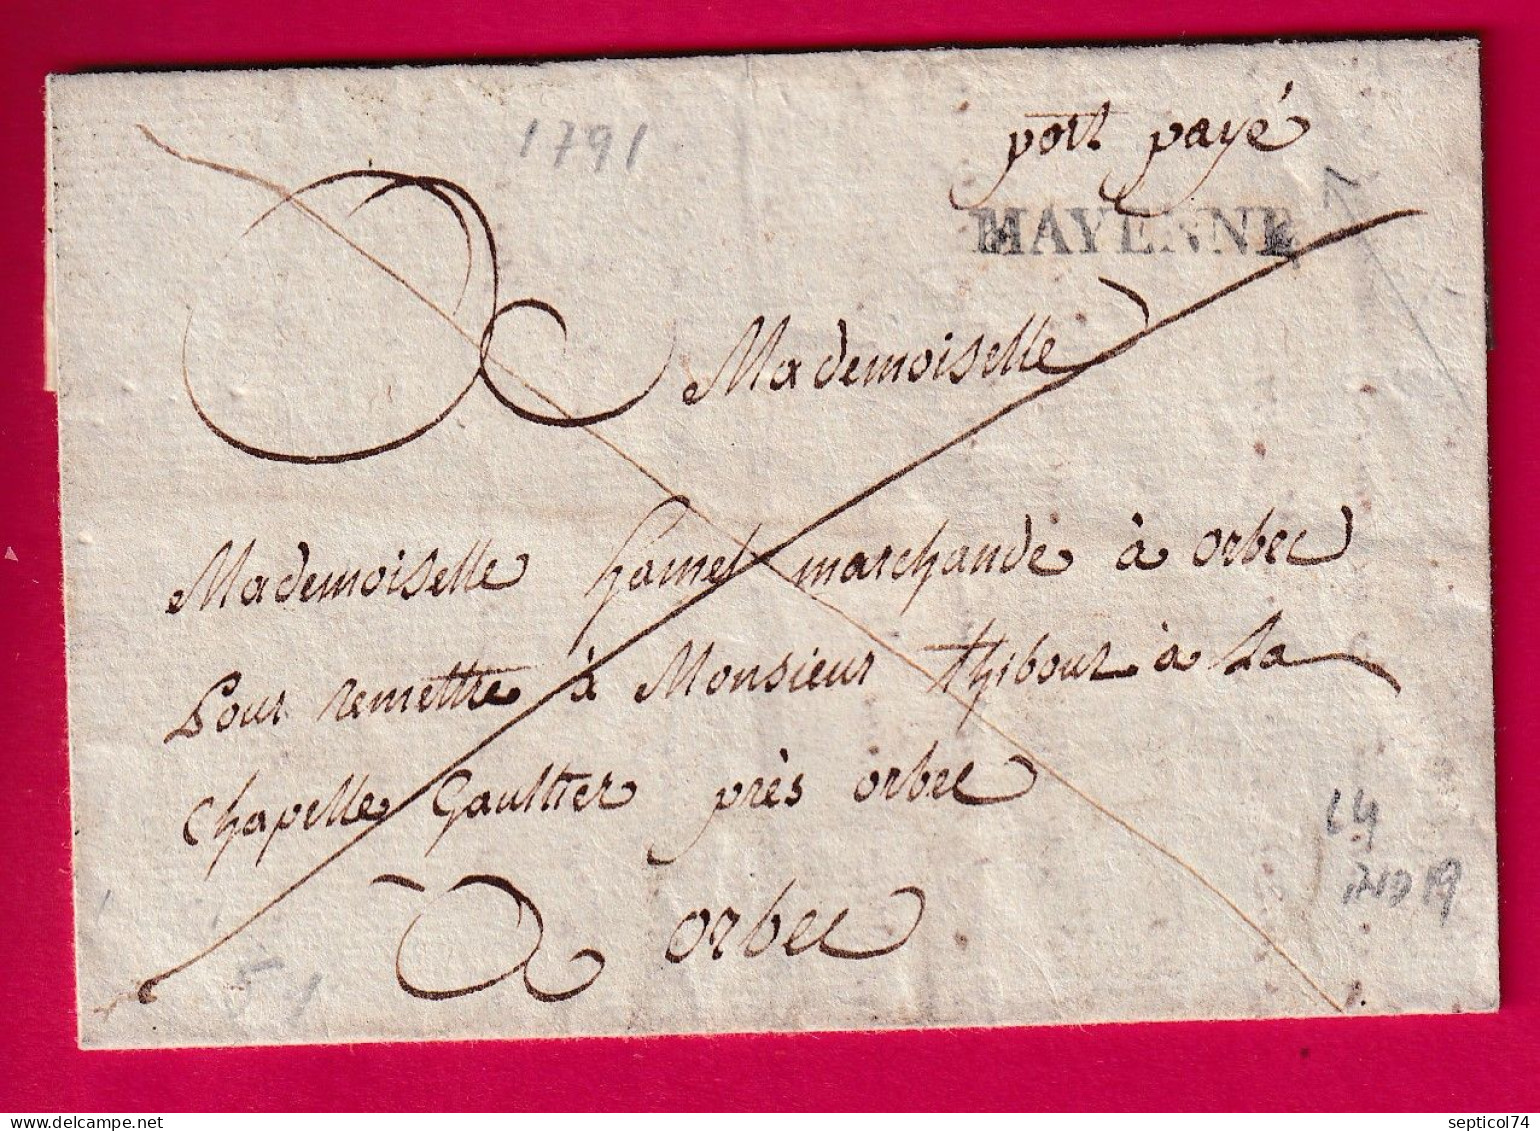 1791
port payé
MAYENNE
Mademoiselle
Mademoiselle hamel marchande à orbec
Pour remettre à Monsieur thibout à La
Chapelle Gaultier près orbec
à orbec
L4
IND 19
septicol74